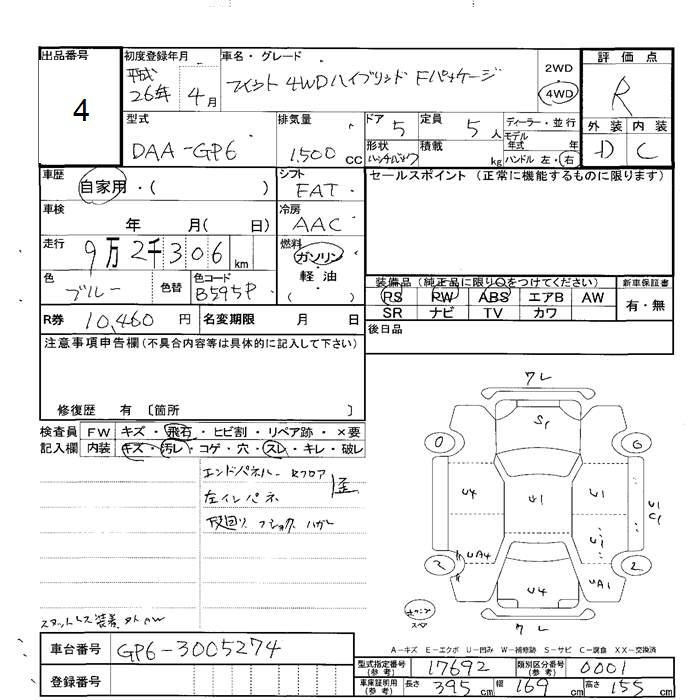 出品番号 初度登録年月 車名・グレード 評価点
4
平成 26年 4月 フィット 4WDハイブリッド Fパッケージ 2WD 4WD R
型式 排気量 ドア 定員 ディーラー・並行 外装 内装
DAA-GP6 1,500 CC 5 5人 モデル年式 年 D C
形状 積載 kg ハンドル 左・右
ハッチバック
車歴 自家用・( ) シフト FAT セールスポイント (正常に機能するものに限ります)
車検 年 月( 日) 冷房 AAC
走行 9万2千306km 燃料 ガソリン 軽油 ( )
色 ブルー 色替 色コード B595P 装備品 (純正品に限り○をつけてください) 新車保証書
PS PW ABS エアB AW 有・無
SR ナビ TV カワ
R券 10,460円 名変期限 月 日 後日品
注意事項申告欄(不具合内容等は具体的に記入して下さい)
修復歴 有 〔箇所 〕
検査員 FW キズ・飛石・ヒビ割・リペア跡・×要
記入欄 内装 キズ・汚レ・コゲ・穴・スレ・キレ・破レ
エンドパネル Rフロア 歪
左インパネ
スタットレス装着
ワレ
S1
U4 U1 U1 U1 C1
U1
UA4 UA1
U4
2 2
スペア
ワレ
A-キズ E-エクボ U-凹み W-補修跡 S-サビ C-腐食 XX-交換済
車台番号 GP6-3005274
登録番号
型式指定番号(参考) 17692 類別区分番号(参考) 0001
車庫証明用(参考) 長さ 395cm 幅 169cm 高さ 155cm